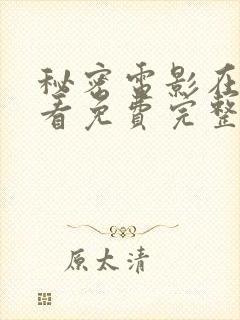 秘密电影在
看免费完整
原太清